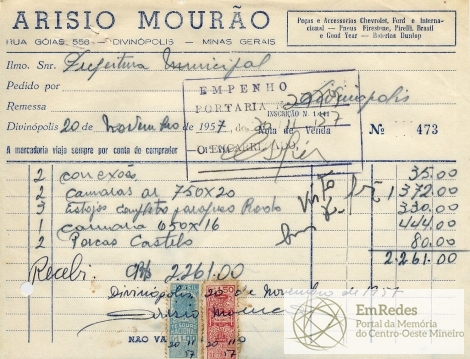 ARISIO MOURÃO
RUA GÓIAS, 556 - DIVINÓPOLIS - MINAS GERAIS
Peças e Accessorios Chevrolet, Ford e Interna-
cional — Pneus Firestone, Pirelli, Brasil
e Good Year — Baterias Dunlop
Ilmo. Snr. Prefeitura Municipal
Pedido por
EMPENHO
PORTARIA
Remessa
Divinópolis
INSCRIÇÃO N. 1441
Divinópolis, 20 de Novembro de 1957
Nota de Venda
Nº 473
A mercadoria viaja sempre por conta do comprador
O ENCARREGADO
2 conexões 35.00
2 camaras ar 750X20 1.372.00
3 Estojos completos Roda 330.00
1 camara 650x16 444.00
2 Porcas Castelo 80.00
2.261.00
Recebi 2.261.00
Divinópolis 20 de Novembro de 1957
Arisio Mourão
NÃO VA
20 11 57
20 11 57
EmRedes
Portal da Memória
do Centro-Oeste Mineiro